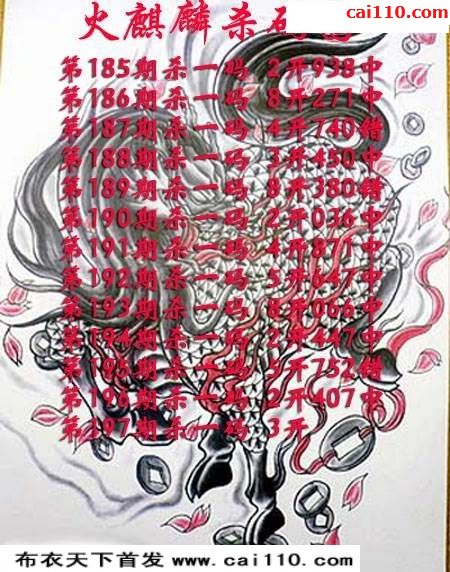 cai110.com
火麒麟杀码
第185期杀一码 2开938中
第186期杀一码 8开271中
第187期杀一码 4开740错
第188期杀一码 3开450中
第189期杀一码 8开380错
第190期杀一码 2开036中
第191期杀一码 4开871中
第192期杀一码 5开647中
第193期杀一码 8开066中
第194期杀一码 2开447中
第195期杀一码 5开752错
第196期杀一码 2开407中
第197期杀一码 3开
布衣天下首发 www.cai110.com